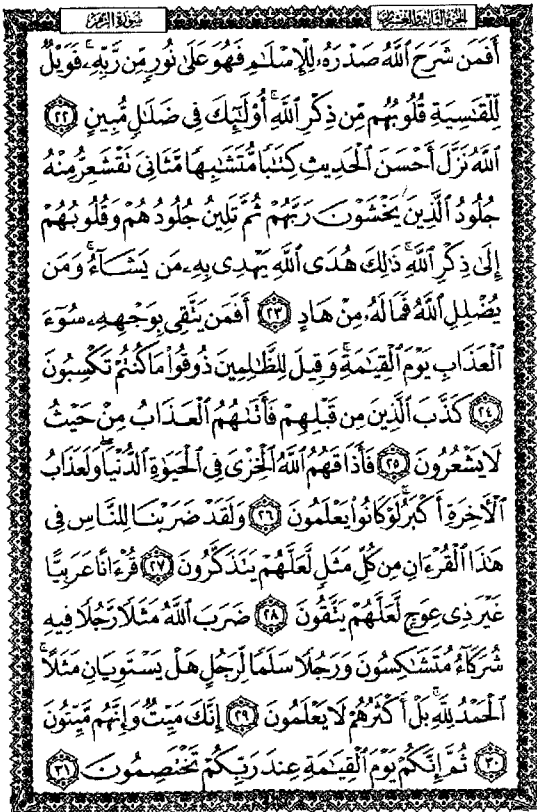 سورة الزمر الجزء الثالث والعشرون
أَفَمَن شَرَحَ ٱللَّهُ صَدْرَهُۥ لِلْإِسْلَٰمِ فَهُوَ عَلَىٰ نُورٍ مِّن رَّبِّهِۦ ۚ فَوَيْلٌ
لِّلْقَٰسِيَةِ قُلُوبُهُم مِّن ذِكْرِ ٱللَّهِ ۚ أُو۟لَٰٓئِكَ فِى ضَلَٰلٍ مُّبِينٍ ٢٢
ٱللَّهُ نَزَّلَ أَحْسَنَ ٱلْحَدِيثِ كِتَٰبًا مُّتَشَٰبِهًا مَّثَانِىَ تَقْشَعِرُّ مِنْهُ
جُلُودُ ٱلَّذِينَ يَخْشَوْنَ رَبَّهُمْ ثُمَّ تَلِينُ جُلُودُهُمْ وَقُلُوبُهُمْ
إِلَىٰ ذِكْرِ ٱللَّهِ ۚ ذَٰلِكَ هُدَى ٱللَّهِ يَهْدِى بِهِۦ مَن يَشَآءُ ۚ وَمَن
يُضْلِلِ ٱللَّهُ فَمَا لَهُۥ مِنْ هَادٍ ٢٣ أَفَمَن يَتَّقِى بِوَجْهِهِۦ سُوٓءَ
ٱلْعَذَابِ يَوْمَ ٱلْقِيَٰمَةِ ۚ وَقِيلَ لِلظَّٰلِمِينَ ذُوقُوا۟ مَا كُنتُمْ تَكْسِبُونَ
٢٤ كَذَّبَ ٱلَّذِينَ مِن قَبْلِهِمْ فَأَتَىٰهُمُ ٱلْعَذَابُ مِنْ حَيْثُ
لَا يَشْعُرُونَ ٢٥ فَأَذَاقَهُمُ ٱللَّهُ ٱلْخِزْىَ فِى ٱلْحَيَوٰةِ ٱلدُّنْيَا ۖ وَلَعَذَابُ
ٱلْءَاخِرَةِ أَكْبَرُ ۚ لَوْ كَانُوا۟ يَعْلَمُونَ ٢٦ وَلَقَدْ ضَرَبْنَا لِلنَّاسِ فِى
هَٰذَا ٱلْقُرْءَانِ مِن كُلِّ مَثَلٍ لَّعَلَّهُمْ يَتَذَكَّرُونَ ٢٧ قُرْءَانًا عَرَبِيًّا
غَيْرَ ذِى عِوَجٍ لَّعَلَّهُمْ يَتَّقُونَ ٢٨ ضَرَبَ ٱللَّهُ مَثَلًا رَّجُلًا فِيهِ
شُرَكَآءُ مُتَشَٰكِسُونَ وَرَجُلًا سَلَمًا لِّرَجُلٍ هَلْ يَسْتَوِيَانِ مَثَلًا ۚ
ٱلْحَمْدُ لِلَّهِ ۚ بَلْ أَكْثَرُهُمْ لَا يَعْلَمُونَ ٢٩ إِنَّكَ مَيِّتٌ وَإِنَّهُم مَّيِّتُونَ
٣٠ ثُمَّ إِنَّكُمْ يَوْمَ ٱلْقِيَٰمَةِ عِندَ رَبِّكُمْ تَخْتَصِمُونَ ٣١